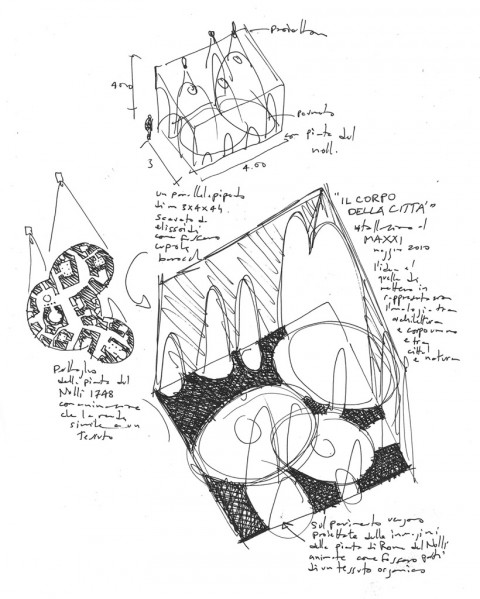 proiettore
4.00
pavimento
con pianta del
Nolli
3
4.00
un parallelepipedo
di m 3x4x4h
scavato da
elissoidi
come fossero
cupole
barocche
"IL CORPO
DELLA CITTÀ"
installazione al
MAXXI
maggio 2010
l'idea è
quella di
mettere in
rapporto
l'analogia tra
architettura
e corpo umano
e tra
città
e natura
Dettaglio
della pianta del
Nolli 1748
con animazione
che la rende
simile a un
tessuto
sul pavimento vengono
proiettate delle immagini
della pianta di Roma del Nolli
animate come fossero
di un tessuto organico